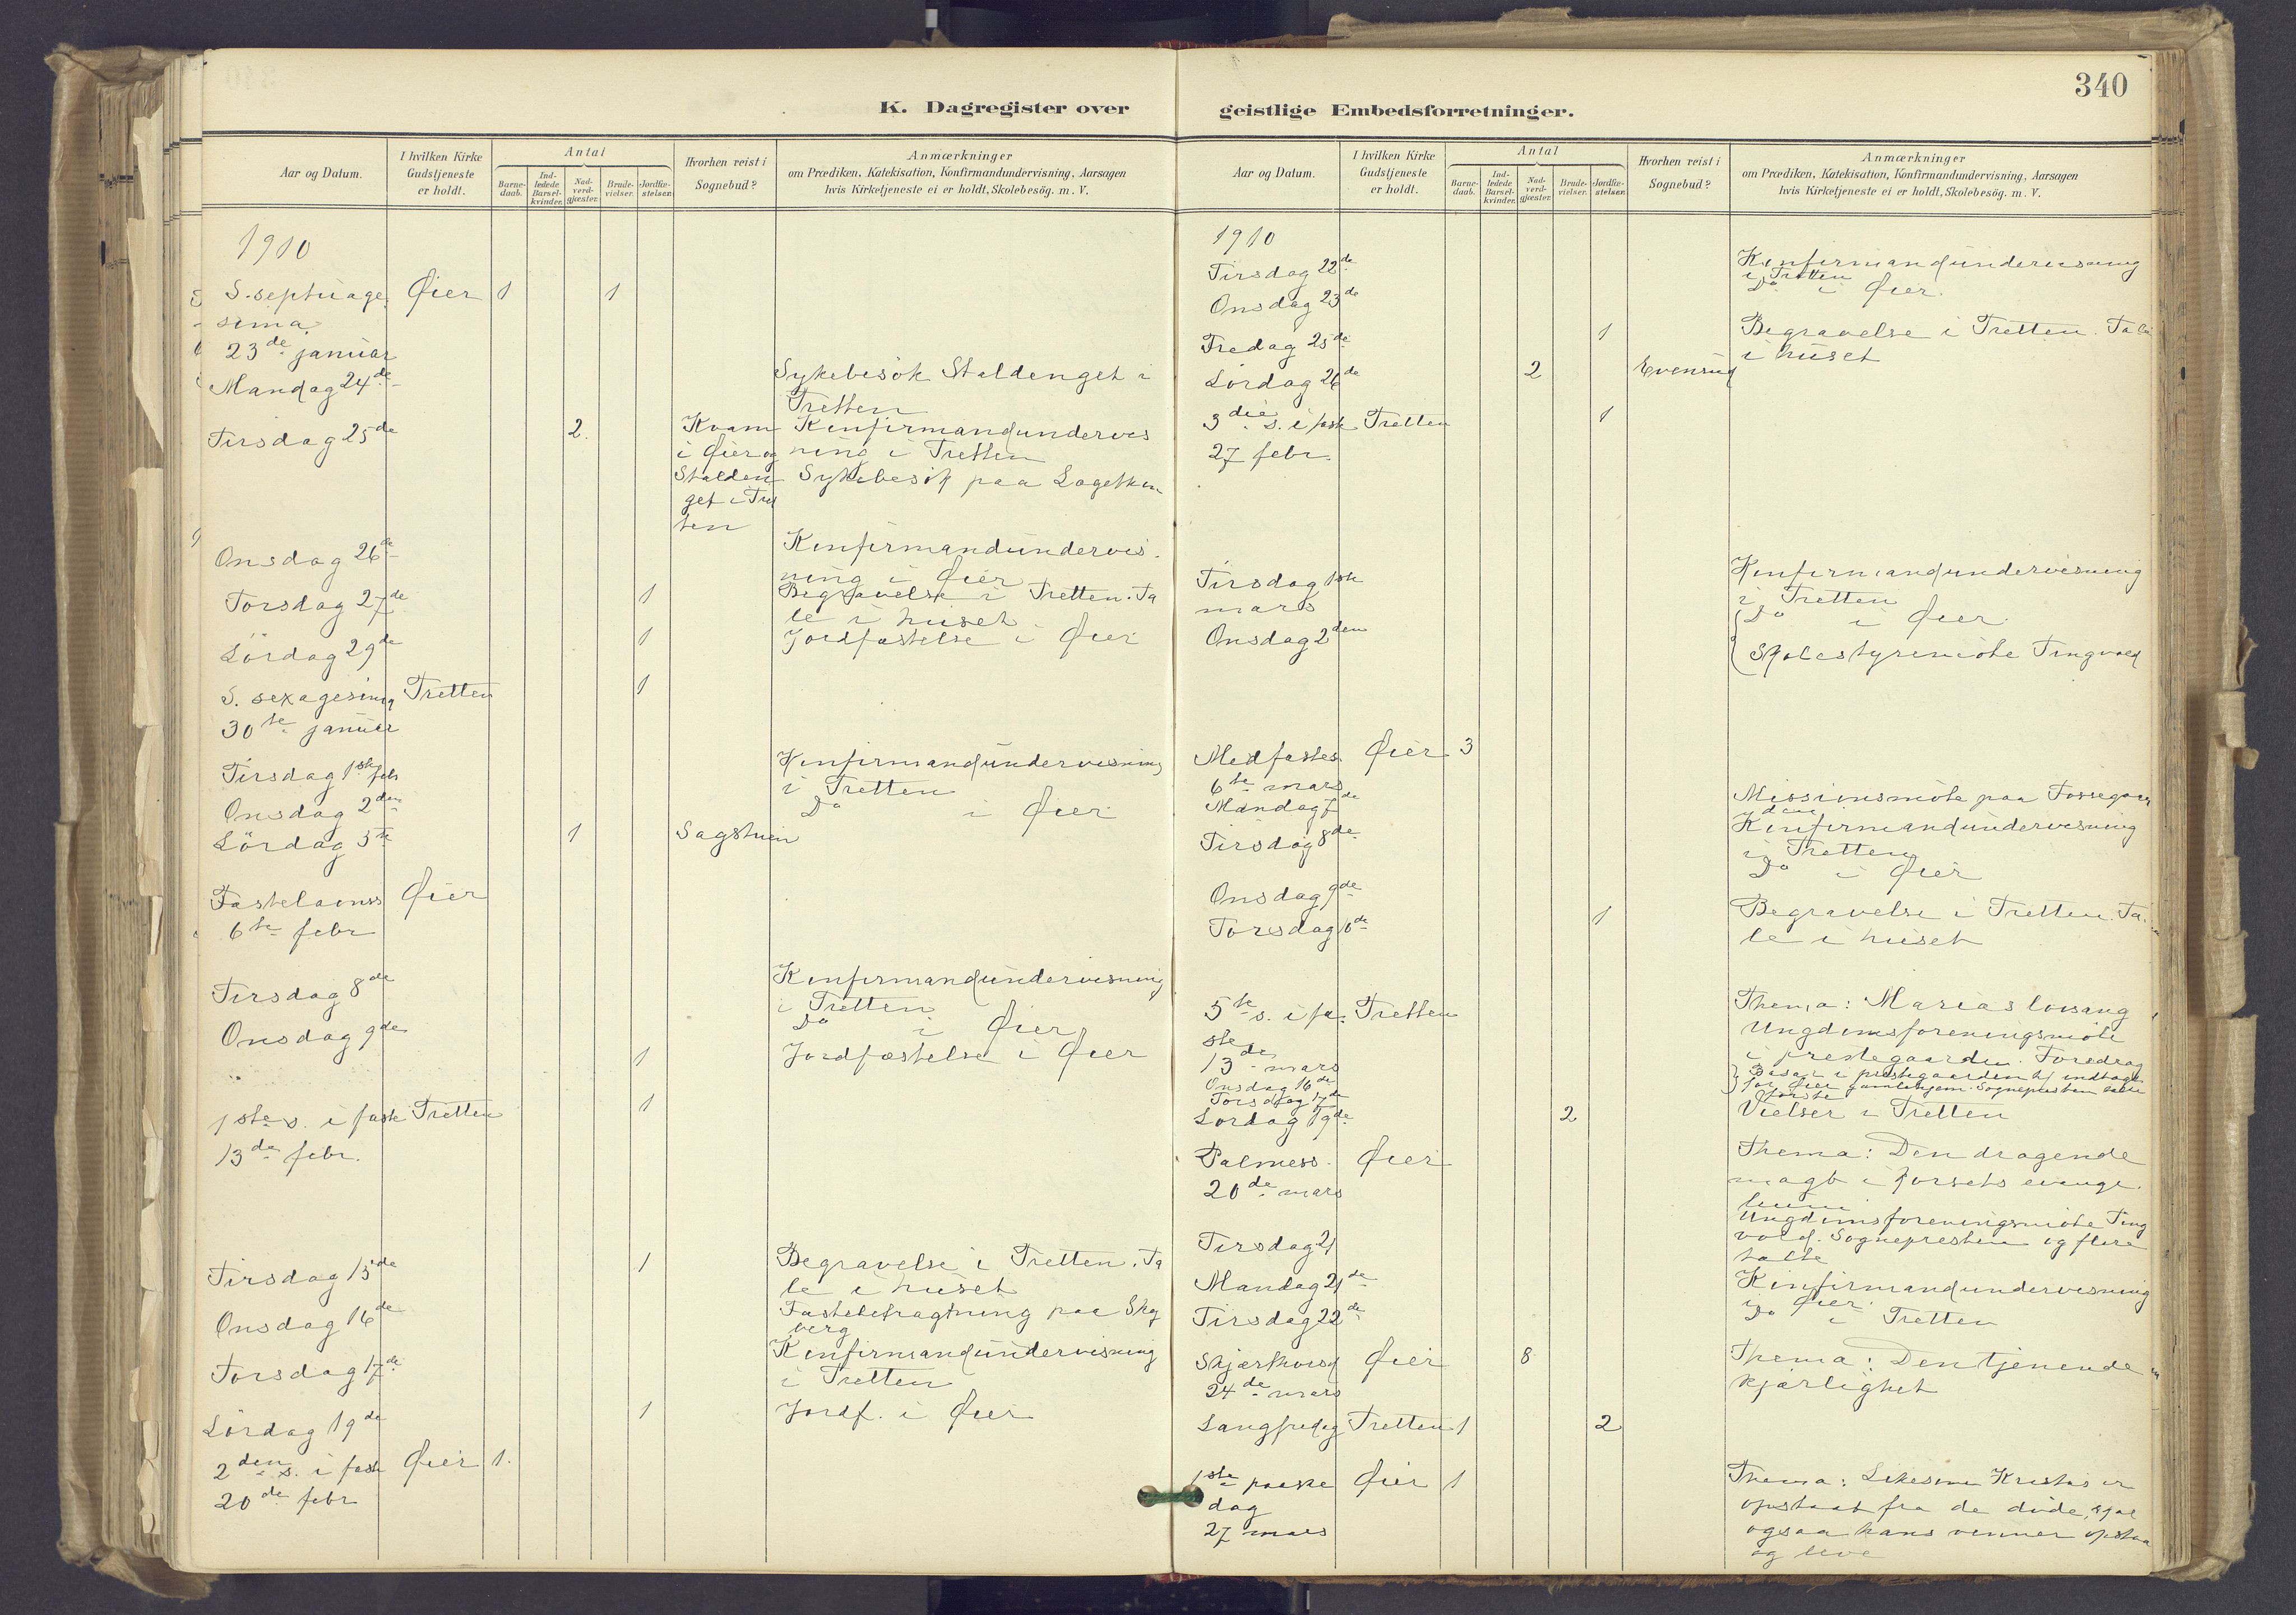 K. Dagregister over
Aar og Datum.
I hvilken Kirke Gudstjeneste er holdt.
Antal
Barne-daab.
Ind-ledede Barsel-kvinder.
Nad-verd-gjæster.
Brude-vielser.
Jordfæ-stelser.
Hvorhen reist i Sognebud?
Anmærkninger
om Prædiken, Katekisation, Konfirmandundervisning, Aarsagen
hvis Kirketjeneste ei er holdt, Skolebesög. m. V.
1910
S. septuage Øier 1 1
sima
23de januar
Mandag 24de Sykebesök Staldenget i
Tretten
Tirsdag 25de 2. Kvam Konfirmandundervis
i Øier og ning i Tretten
Stalden Sykebesök paa
get i Tret
ten
Onsdag 26de Konfirmandundervis.
ning i Øier
Torsdag 27de 1 Begravelse i Tretten. Ta
le i huset
Lördag 29de 1 Jordfæstelse i Øier
S. sexagesima Tretten 1
30te januar
Tirsdag 1ste febr Konfirmandundervisning
i Tretten
Onsdag 2den Do i Øier
Lördag 5te 1 Sagstuen
Fastelavnss Øier
6te febr
Tirsdag 8de Konfirmandundervisning
i Tretten
Onsdag 9de Do i Øier
1 Jordfæstelse i Øier
1ste s. i faste Tretten 1
13de febr.
Tirsdag 15de 1 Begravelse i Tretten. Ta
le i huset
Onsdag 16de Fastebetragtning paa Sky
berg
Torsdag 17de Konfirmandundervisning
i Tretten
Lördag 19de 1 Jordf. i Øier
2den s. i fast Øier 1.
20de febr
340
geistlige Embedsforretninger.
Aar og Datum.
I hvilken Kirke Gudstjeneste er holdt.
Antal
Barne-daab.
Ind-ledede Barsel-kvinder.
Nad-verd-gjæster.
Brude-vielser.
Jordfæ-stelser.
Hvorhen reist i Sognebud?
Anmærkninger
om Prædiken, Katekisation, Konfirmandundervisning, Aarsagen
hvis Kirketjeneste ei er holdt, Skolebesög. m. V.
1910
Tirsdag 22de Konfirmandundervisning
i Tretten
Onsdag 23de Do i Øier.
Fredag 25de 1 Begravelse i Tretten. Tale
i huset
Lördag 26de 2 Evensrud
3die s. i fast Tretten 1
27 febr.
Tirsdag 1ste Konfirmandundervisning
mars i Tretten
Do i Øier.
Onsdag 2den Skolestyremöte Tingvold
Midfastes Øier 3
6te mars
Mandag 7de Missionsmöte paa Fossegaar
den
Tirsdag 8de Konfirmandundervisning
i Tretten
Onsdag 9de Do i Øier
Torsdag 10de 1 Begravelse i Tretten. Ta
le i huset
5te s. i fa Tretten Thema: Marias lovsang
ste Ungdomsforeningsmöte
13de mars i prestegaarden. Foredrag
Onsdag 16de Basar i prestegaarden til indtægt
Torsdag 17de for Øier gamlehjem. Sognepresten
Lördag 19de 2 Vielser i Tretten
Palmess. Øier Thema: Den dragende
20de mars magt i korsets evange
lium
Ungdomsforeningsmöte Ting
Tirsdag 21 vold. Sognepresten og flere
talte
Mandag 21de Konfirmandundervisning
i Øier
Tirsdag 22de Do i Tretten
Skjærtorsd Øier 8 Thema: Den tjenende
24de mars kjærlighet
Langfredag Tretten 1 2
1ste paaske Øier 1 Thema: Likesom Kristus er
dag opstaat fra de döde, skal
27 mars ogsaa hans venner opstaa
og leve